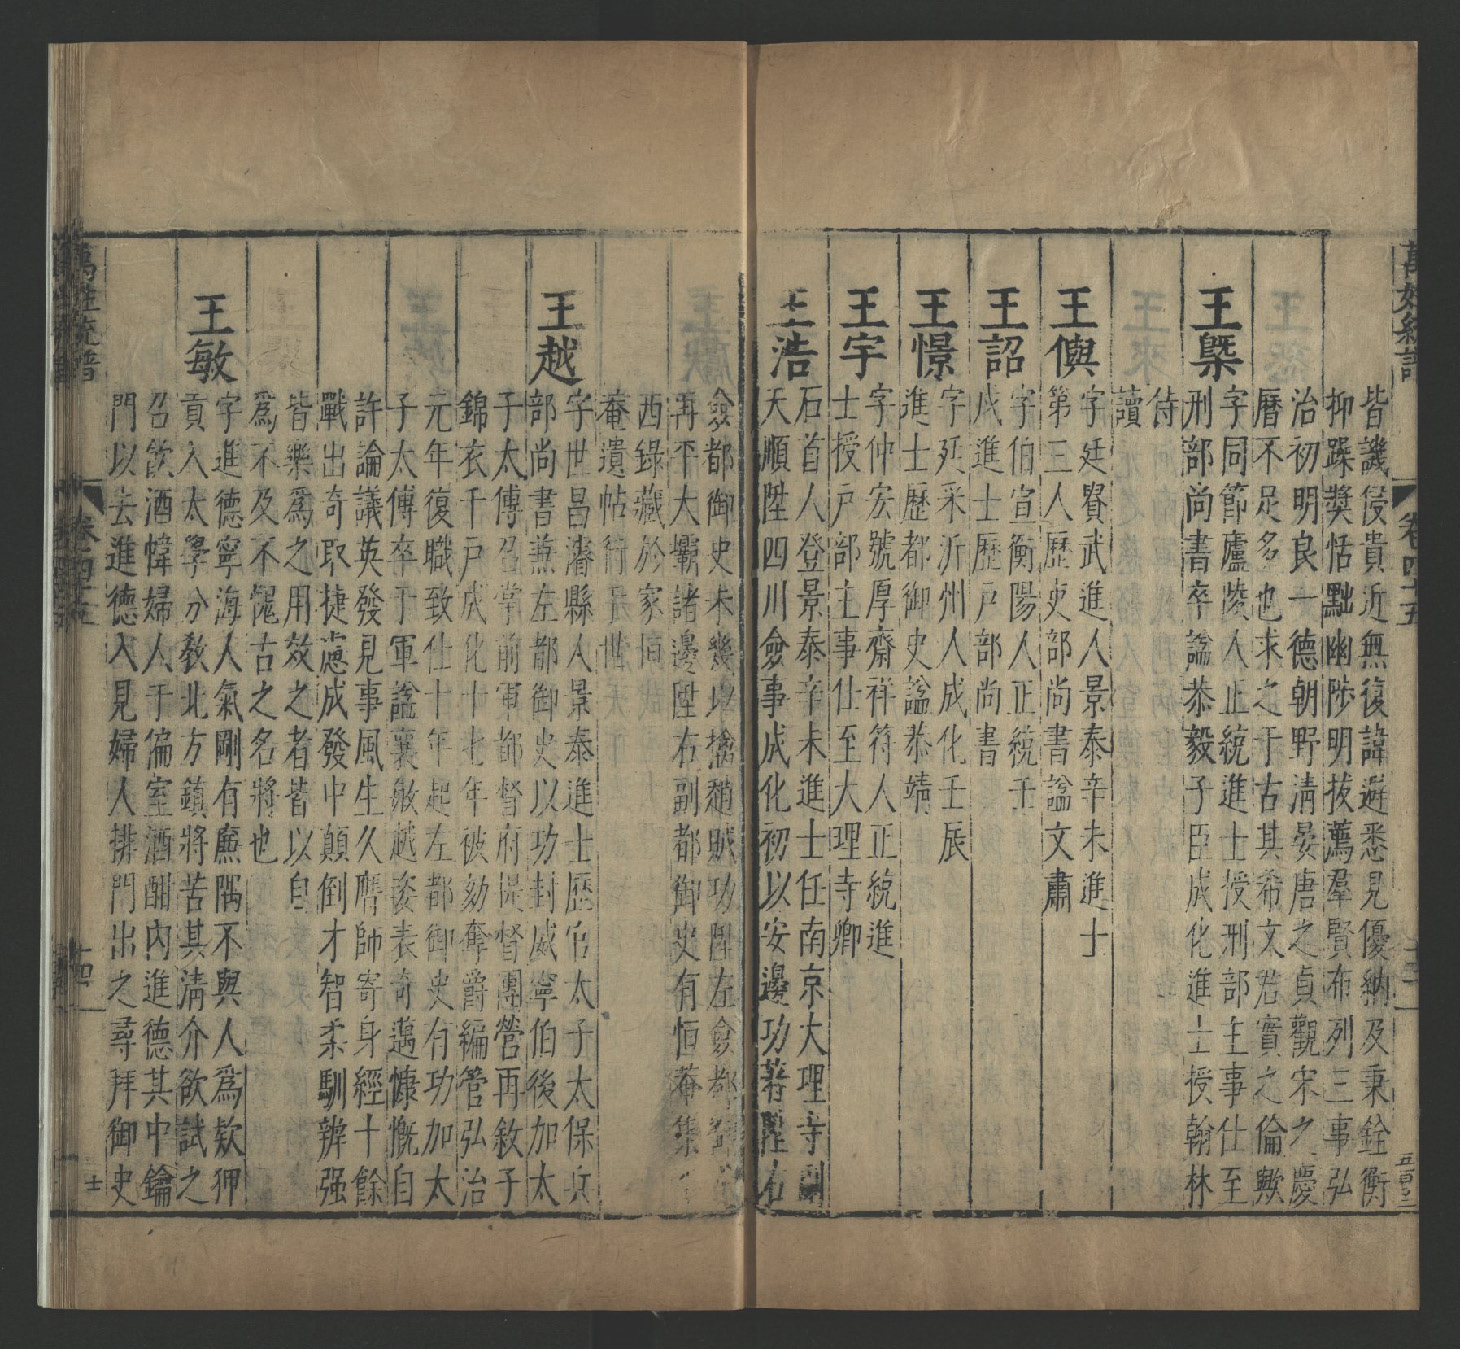 皆譏侵貴近無復諱避悉見優納及秉銓衡
抑躁獎恬黜幽陟明拔薦羣賢布列三事弘
治初明良一德朝野清晏唐之貞觀宋之慶
曆不足多也求之于古其希文君實之倫歟
王槩
字同節廬陵人正統進士授刑部主事仕至
刑部尚書卒謚恭毅子臣成化進士授翰林
侍
讀
王㒜
字廷賢武進人景泰辛未進士
第三人歷吏部尚書謚文肅
王詔
字伯宣衡陽人正統壬
戌進士歷戶部尚書
王憬
字延釆沂州人成化壬辰
進士歷都御史謚恭靖
王宇
字仲宏號厚齋祥符人正統進
士授戶部主事仕至大理寺卿
王浩
石首人登景泰辛未進士任南京大理寺副
天順陞四川僉事成化初以安邊功著陞右
僉都御史未幾以擒趙賊功陞左僉都
再平大壩諸邊陞右副都御史有恒菴集
西錄藏於家恒
菴遺帖行于世
王越
字世昌濬縣人景泰進士歷官太子太保兵
部尚書兼左都御史以功封威寧伯後加太
子太傅召掌前軍都督府提督團營再敘子
錦衣千戶成化十九年被劾奪爵編管弘治
元年復職致仕十年起左都御史有功加太
子太傅卒于軍謚襄敏越姿表奇邁慷慨自
許論議英發見事風生久曆師寄身經十餘
戰出奇取捷慮成發中顛倒才智柔馴辨强
皆樂爲之用效之者皆以自
爲不及不愧古之名將也
王敏
字進德寧海人氣剛有廉隅不與人爲欵狎
貢入太學分敎北方鎮將苦其清介欲試之
召飲酒幃婦人于偏室酒酣內進德其中鑰
門以去進德入見婦人排門出之尋拜御史
萬姓統譜
卷四十五
十四